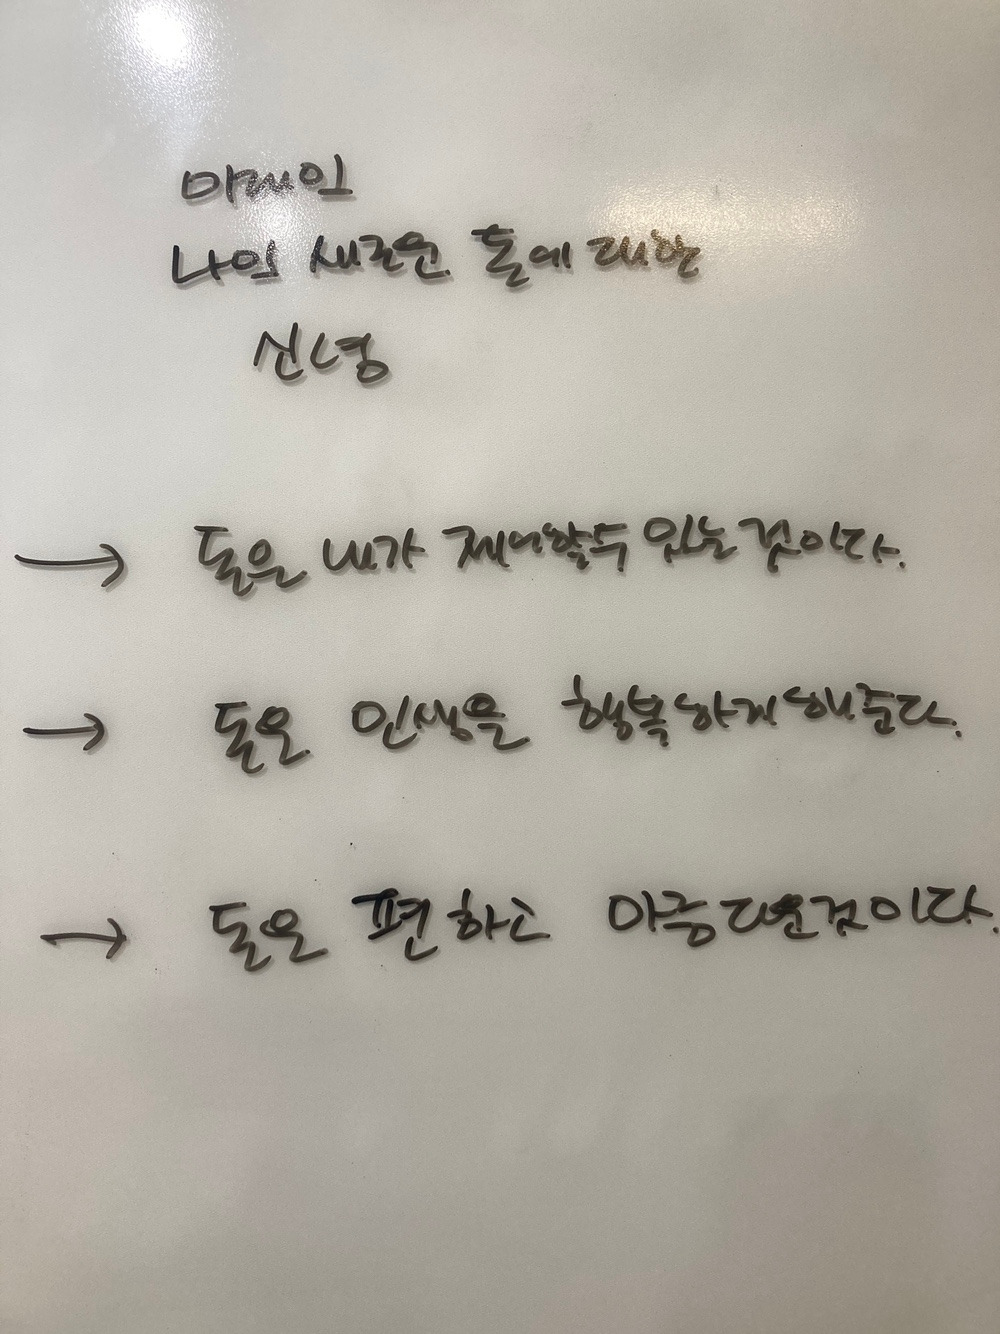 나의 새로운 돈에 대한
신념
→ 돈은 내가 제어할수 있는 것이다.
→ 돈은 인생을 행복하게 해준다.
→ 돈은 편하고 아름다운것이다.